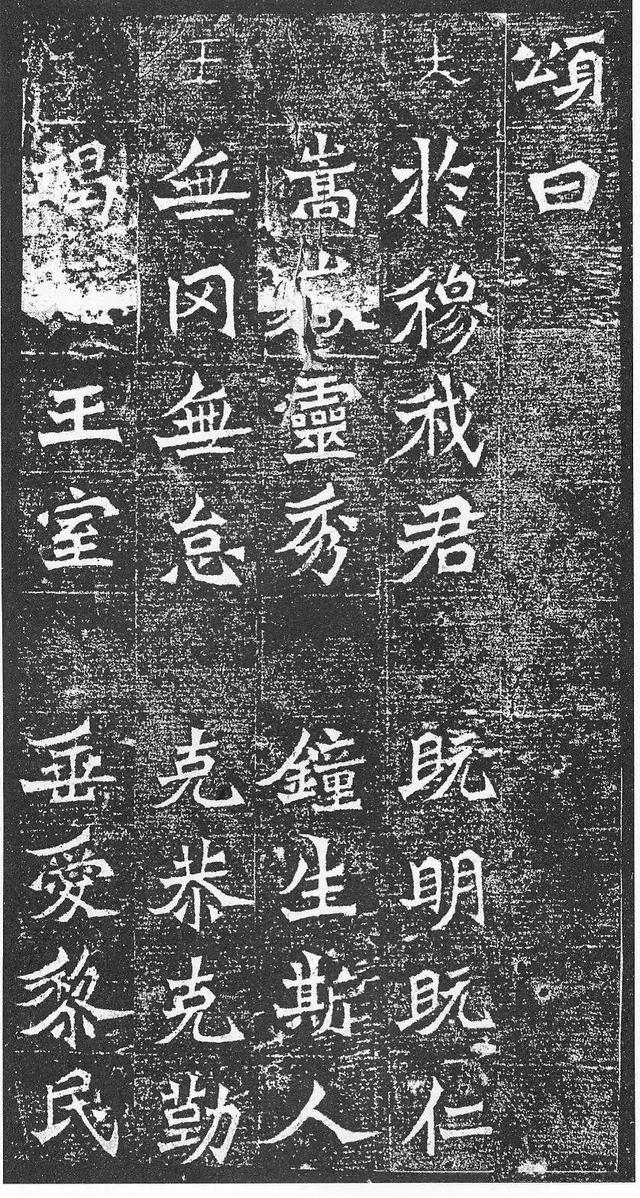 頌曰
大
於穆我君 既明既仁
嵩靈秀 鐘生斯人
王
無罔無怠 克恭克勤
竭王室 垂愛黎民